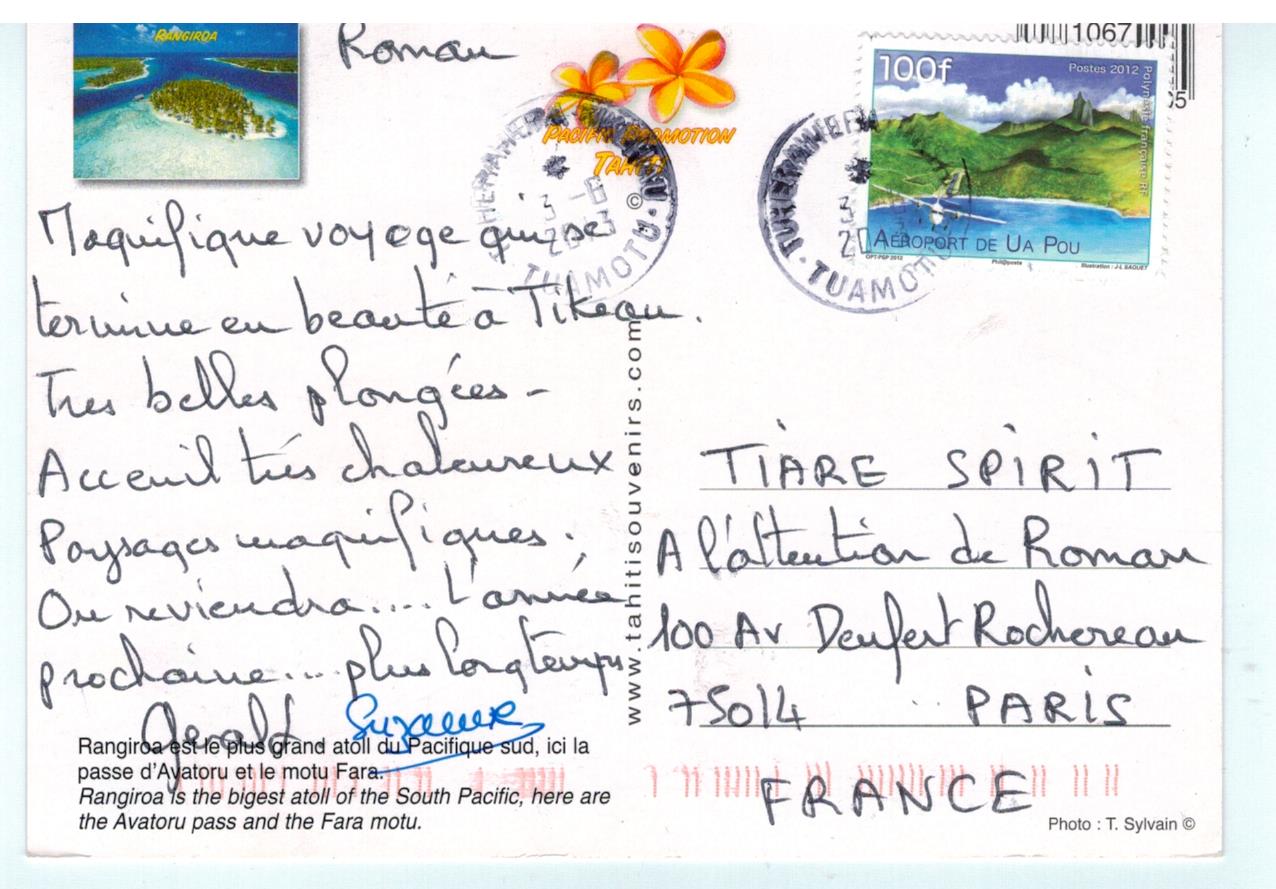 RANGIROA
Roman
PACIFIC PROMOTION
TAHITI
©
Magnifique voyage qui se
termine en beauté à Tikeau.
Tres belles plongées -
Acceuil très chaleureux
Paysages magnifiques.,
On reviendra.... L'année
prochaine... plus longtemps
Gerald. Suzanne
Rangiroa est le plus grand atoll du Pacifique sud, ici la
passe d'Avatoru et le motu Fara.
Rangiroa is the bigest atoll of the South Pacific, here are
the Avatoru pass and the Fara motu.
www.tahitisouvenirs.com
1067
05
100f
Postes 2012
Polynésie française RF
AÉROPORT DE UA POU
OPT-PGP 2012
Phil@poste
Illustration : J-L SAQUET
TUHERAHERA
3 -6
2013
TUAMOTU
TUHERAHERA
3
20
TUAMOTU
TIARE SPIRIT
A l'attention de Roman
100 Av Denfert Rochereau
75014 PARIS
FRANCE
Photo : T. Sylvain ©